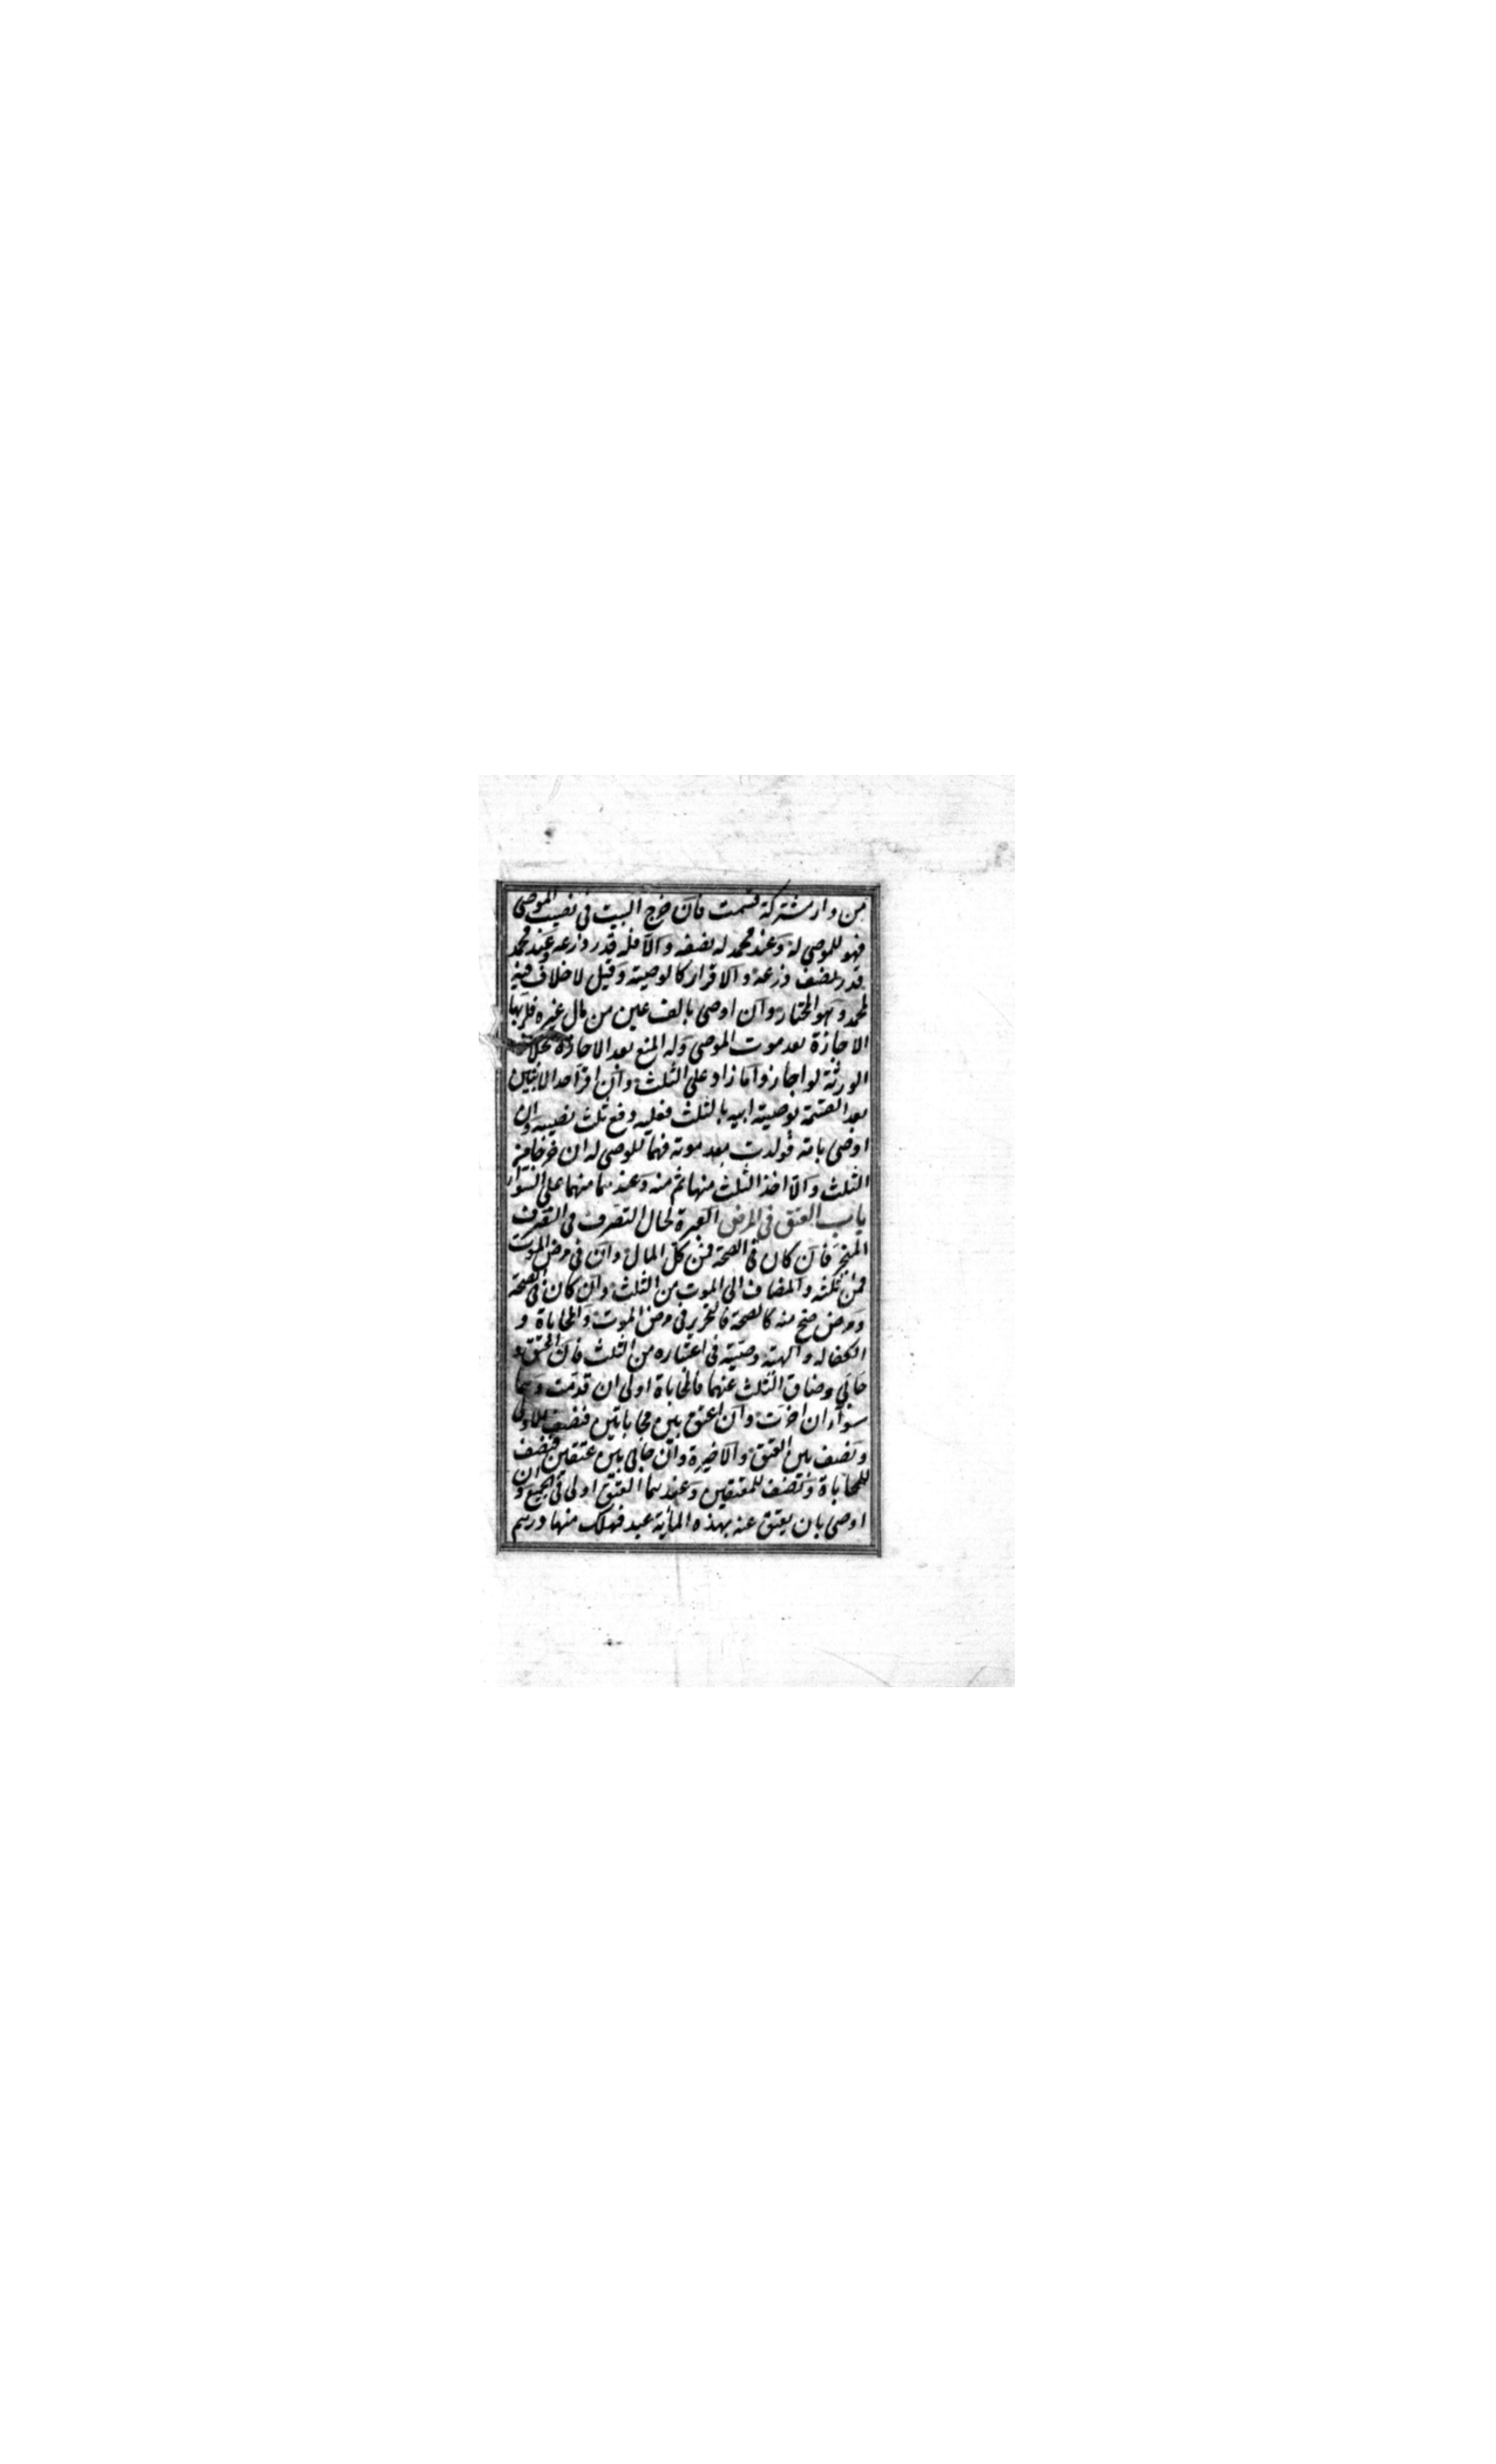 من دار مشتركة قسمت فان خرج البيت فى نصيب الموصى
فهو للموصى له وعند محمد له نصفه والا فله قدر ذرعه وعند محمد
قدر نصف ذرعه والاقرار كالوصية وقيل لا خلاف فيه
لمحمد وهو المختار وان اوصى بالف عين من مال غيره فلربها
الاجازة بعد موت الموصى وله المنع بعد الاجازة بخلاف
الورثة لو اجازوا ما زاد على الثلث وان اقر احد الابنين
بعد القسمة بوصية ابيه بالثلث فعليه دفع ثلث نصيبه وان
اوصى بامة فولدت بعد موته فهما للموصى له ان خرجا من
الثلث والا اخذ الثلث منها ثم منه وعندهما منهما على السواء
باب العتق فى المرض العبرة لحال التصرف فى التصرف
المنجز فان كان فى الصحة فمن كل المال وان فى مرض الموت
فمن ثلثه والمضاف الى الموت من الثلث وان كان فى الصحة
ومرض صح منه كالصحة فالتحرير فى مرض الموت والمحاباة و
الكفالة والهبة وصية فى اعتباره من الثلث فان اعتق و
حابى وضاق الثلث عنهما فالمحاباة اولى ان قدمت وهما
سواء ان اخرت وان اعتق بين محاباتين فنصف للاولى
ونصف بين العتق والاخيرة وان حابى بين عتقين فنصف
للمحاباة ونصف للعتقين وعندهما العتق اولى فى الجميع وان
اوصى بان يعتق عنه بهذه المأية عبد فهلك منها درهم